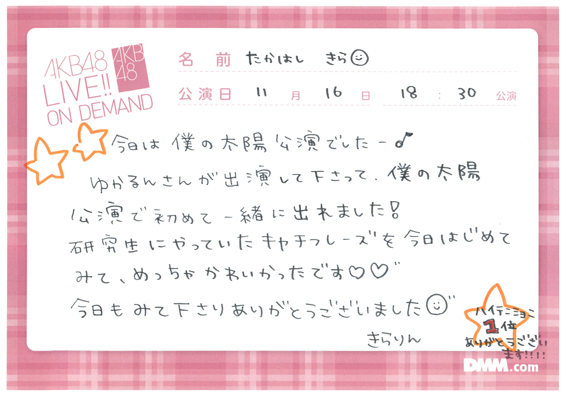 AKB48
LIVE!!
ON DEMAND
AKB
48
名前 たかはし きら
公演日 11月16日 18:30公演
今日は僕の太陽公演でしたー♪
ゆかるんさんが出演して下さって、僕の太陽
公演で初めて一緒に出れました!
研究生にやっていたキャチフレーズを今日はじめて
みて、めっちゃかわいかったです♡♡
今日もみて下さりありがとうございました
きらりん
ハイテンション
1位
ありがとうござい
ます!!!!
DMM.com